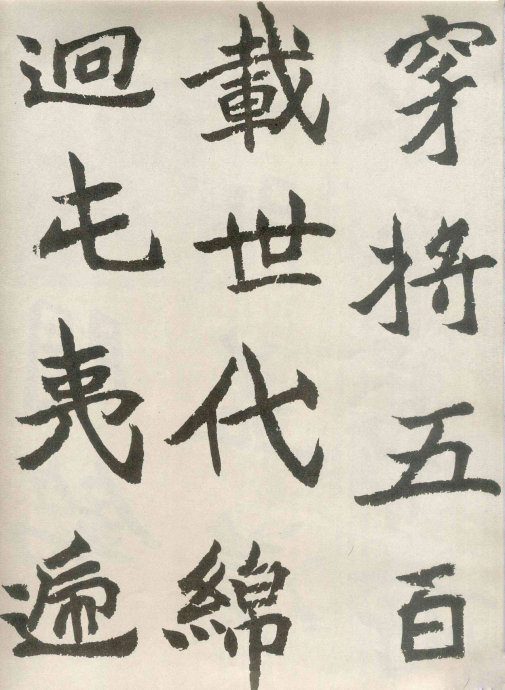 穿將五百
載世代綿
迴屯夷遍